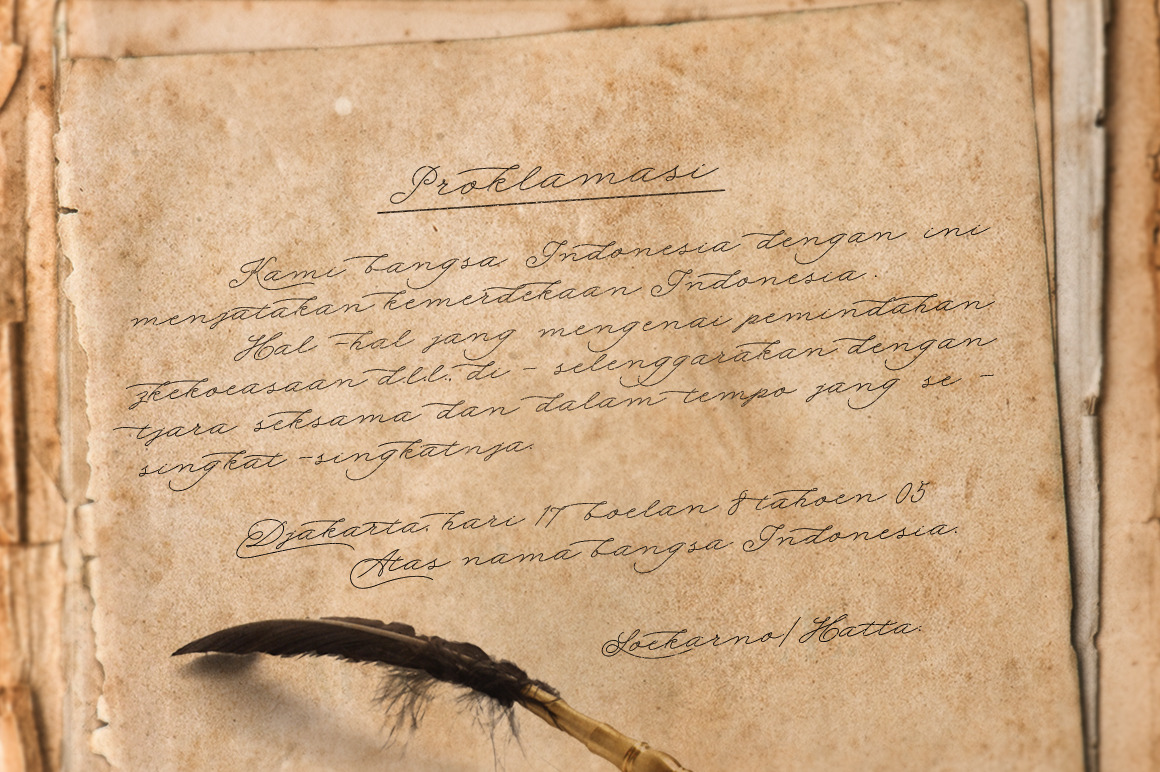 Proklamasi
Kami bangsa Indonesia dengan ini
menjatakan kemerdekaan Indonesia.
Hal -hal jang mengenai pemindahan
zkekoeasaan d.l.l. di - selenggarakan dengan
tjara seksama dan dalam tempo jang se -
singkat -singkatnja.
Djakarta, hari 17 boelan 8 tahoen 05
Atas nama bangsa Indonesia.
Soekarno/ Hatta.